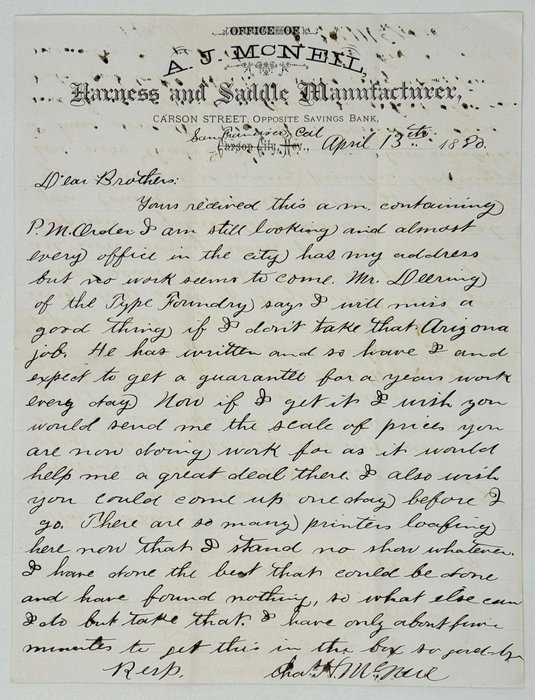 OFFICE OF
A. J. McNEIL,
Harness and Saddle Manufacturer,
CARSON STREET, OPPOSITE SAVINGS BANK,
San Francisco, Cal
Carson City, Nev., April 13th 1880.
Dear Brothers:
Yours recived this a.m. containing
P.M. Order I am still looking and almost
every office in the city has my address
but no work seems to come. Mr. Deering
of the Type Foundry says I will miss a
good thing if I don't take that Arizona
job. He has written and so have I and
expect to get a guarantee for a years work
every day Now if I get it I wish you
would send me the scale of prices you
are now doing work for as it would
help me a great deal there. I also wish
you could come up one day before I
go. There are so many printers loafing
here now that I stand no show whatever.
I have done the best that could be done
and have found nothing, so what else can
I do but take that. I have only about five
minutes to get this in the box so good-bye
Resp. Chas. H. McNeil